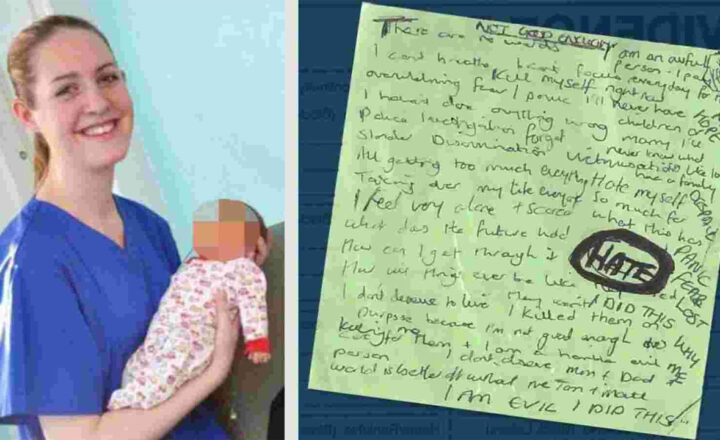 VIDENC
NOT GOOD ENOUGH
There are no words I am an awful person - I pay
I can't breathe I can't focus everyday for
Kill myself right now
overwhelming fear / panic I'll never have
HOPE
I haven't done anything wrong children or marry I'll
Police investigation forget never know what
Slander Discrimination Victimisation like to have a family
All getting too much everything Hate myself
DESPAIR
Taking over my life everyday so much for
I feel very alone + scared what this has
PANIC
What does the future hold
HATE
FEAR
How can I get through it
LOST
How will things ever be like
I DID THIS
I don't deserve to live. I killed them on
WHY ME
purpose because I'm not good enough
to care for them + I am a horrible evil
person I don't deserve Mum + Dad
world is better off without me Tom + Matt
I AM EVIL I DID THIS